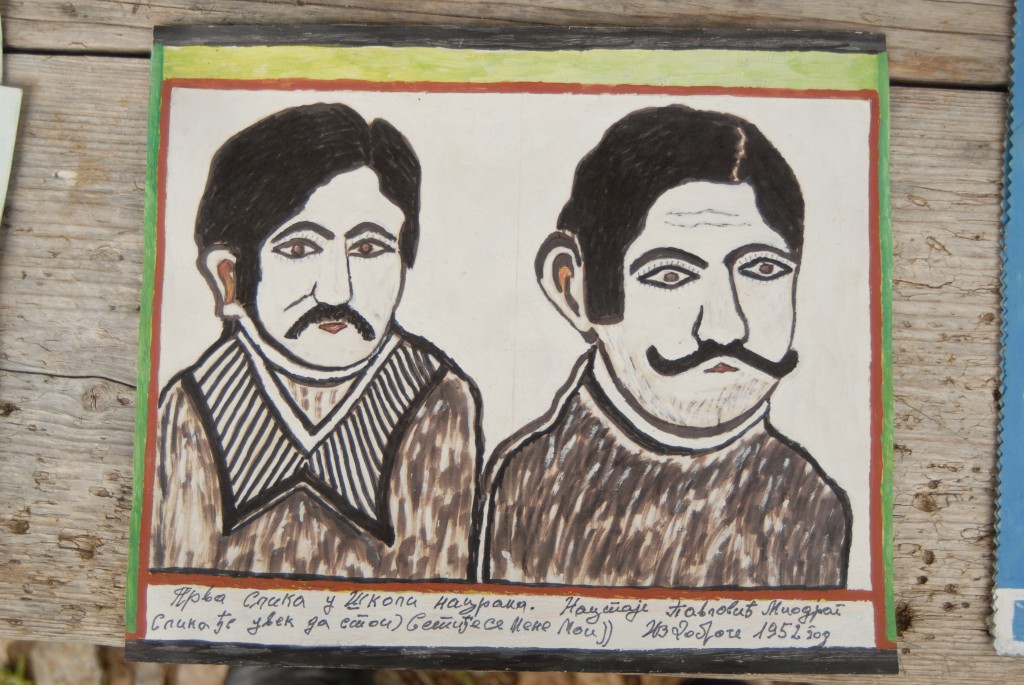 Прва Слика у Школи нацрана. Нацртаје Павловић Миодраг
Слика ће увек да стои) Сетиће се мене мои)) Из Доброче 1952 год